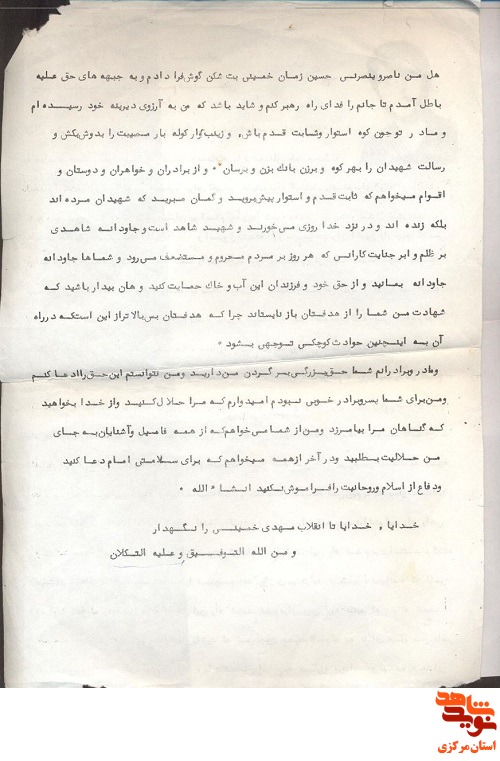 هل من ناصرو ینصرنی حسین زمان خمینی بت شکن گوش فرا دادم و به جبهه های حق علیه
باطل آمدم تا جانم را فدای راه رهبر کنم و شاید باشد که من به آرزوی دیرینه خود رسیده ام
و مادر تو چون کوه استوار و شابت قدم باش و زینب گوار کوله بار مصیبت را بدوش بکش و
رسالت شهیدان را بهر کوه و برزن بانک بزن و برسان ۰۰ و از برادران و خواهران و دوستان و
اقوام میخواهم که ثابت قدم و استوار پیش بروید و گمان مبرید که شهیدان مرده اند
بلکه زنده اند و در نزد خدا روزی می خورند و شهید شاهد است و جاودانه شاهدی
بر ظلم و ابر جنایتکارانی که هر روز بر مردم محروم و مستضعف می رود و شماها جاودانه
جاودانه بمانید و از حق خود و فرزندان این آب و خاک حمایت کنید و هان بیدار باشید که
شهادت من شما را از هدفتان باز نایستاند چرا که هدفتان بس بالاتر از این استکه در راه
آن به اینچنین حوادث کوچکی توجهی بشود ۰
و مادر و برادرانم شما حق بزرگی بر گردن من دارید و من نتوانستم این حق را ادعا کنم
و من برای شما پسر و برادر خوبی نبودم امیدوارم که مرا حلال کنید و از خدا بخواهید
که گناهان مرا بیامرزد و من از شما می خواهم که از همه فامیل و آشنایان به جای
من حلالیت بطلبید و در آخر از همه میخواهم که برای سلامتی امام دعا کنید
و دفاع از اسلام و روحانیت را فراموش نکنید انشاء الله ۰
خدایا و خدایا تا انقلاب مهدی خمینی را نگهدار
و من الله التوفیق و علیه التکلان
نوید شاهد
استان مرکزی